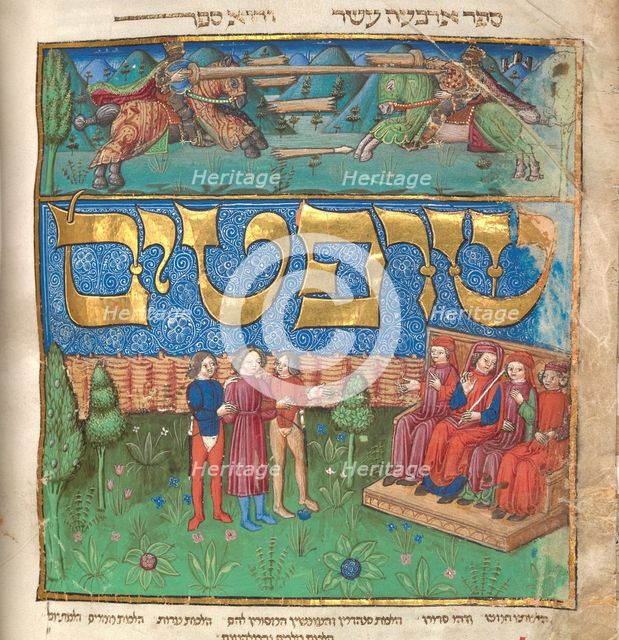 ספר ארבעה עשר והוא ספר
Heritage Heritage
שופטים
Heritage Heritage
Heritage Heritage
חמש וזהו הלכות סנהדרין והעונשין המסורין להם הלכות עדות הלכות ממרים
הלכות מלכים ומלחמותיהם